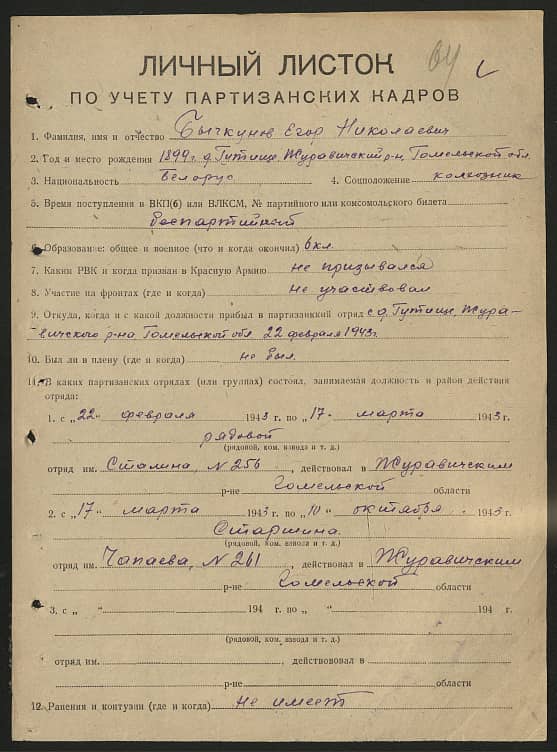 ЛИЧНЫЙ ЛИСТОК
ПО УЧЕТУ ПАРТИЗАНСКИХ КАДРОВ
1. Фамилия, имя и отчество Бычкунов Егор Николаевич
2. Год и место рождения 1899 г. д. Гутище, Журавичский р-н, Гомельской обл.
3. Национальность Белорус 4. Соцположение колхозник
5. Время поступления в ВКП(б) или ВЛКСМ, № партийного или комсомольского билета
беспартийный
6. Образование: общее и военное (что и когда окончил) 6 кл.
7. Каким РВК и когда призван в Красную Армию не призывался
8. Участие на фронтах (где и когда) не участвовал
9. Откуда, когда и с какой должности прибыл в партизанский отряд с д. Гутище, Жура-
вичского р-на Гомельской обл. 22 февраля 1943 г.
10. Был ли в плену (где и когда) не был.
11. В каких партизанских отрядах (или группах) состоял, занимаемая должность и район действия
отряда:
1. с „22“ февраля 1943 г. по „17“ марта 1943 г.
рядовой
(рядовой, ком. взвода и т. д.)
отряд им. Сталина, N 256, действовал в Журавичским
р-не Гомельской области
2. с „17“ марта 1943 г. по „10“ октября 1943 г.
Старшина.
(рядовой, ком. взвода и т. д.)
отряд им. Чапаева, N 261, действовал в Журавичским
р-не Гомельской области
3. с „ “ 194 г. по „ “ 194 г.
(рядовой, ком. взвода и т. д.)
отряд им. , действовал в
р-не области
12. Ранения и контузии (где и когда) не имеет